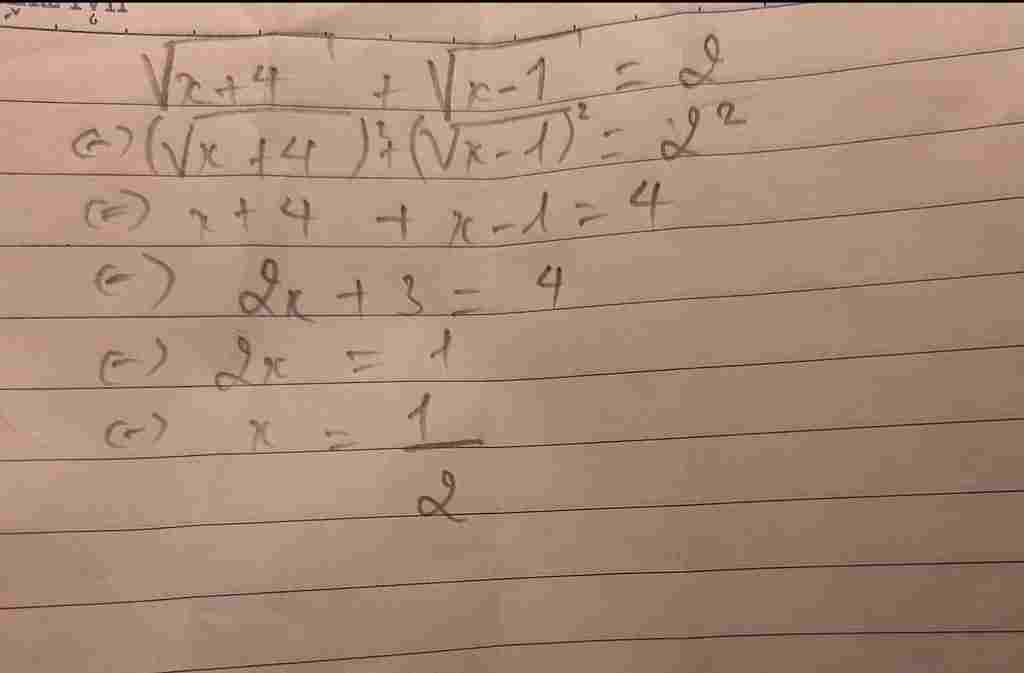 √x+4 + √x-1 = 2
(=) (√x+4)² + (√x-1)² = 2²
(=) x+4 + x-1 = 4
(=) 2x + 3 = 4
(=) 2x = 1
(=) x = 1/2